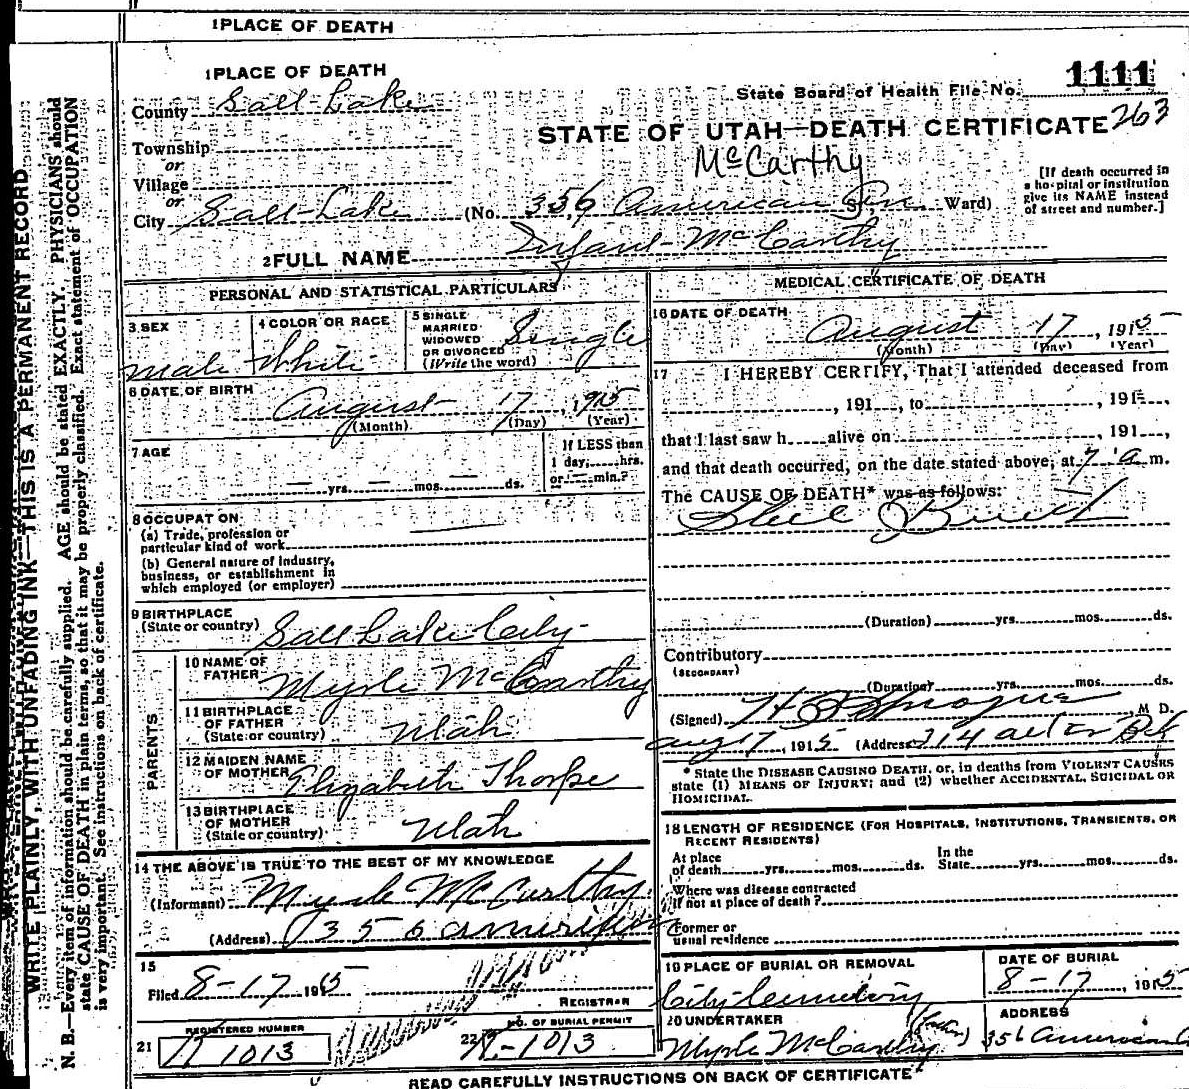 1 PLACE OF DEATH
1 PLACE OF DEATH
1111
State Board of Health File No.
County Salt Lake
STATE OF UTAH—DEATH CERTIFICATE 263
Township
or
McCarthy
Village
or
City Salt Lake (No. 356 American Ward)
[If death occurred in a hospital or institution give its NAME instead of street and number.]
2 FULL NAME Infant McCarthy
PERSONAL AND STATISTICAL PARTICULARS
3 SEX Male
4 COLOR OR RACE White
5 SINGLE MARRIED WIDOWED OR DIVORCED (Write the word) Single
6 DATE OF BIRTH
August 17, 1915
(Month) (Day) (Year)
7 AGE
If LESS than
1 day, hrs.
yrs. mos. ds. or min.?
8 OCCUPATION
(a) Trade, profession or
particular kind of work
(b) General nature of Industry,
business, or establishment in
which employed (or employer)
9 BIRTHPLACE
(State or country) Salt Lake City
PARENTS
10 NAME OF
FATHER Myrle McCarthy
11 BIRTHPLACE
OF FATHER
(State or country) Utah
12 MAIDEN NAME
OF MOTHER Elizabeth Thorpe
13 BIRTHPLACE
OF MOTHER
(State or country) Utah
14 THE ABOVE IS TRUE TO THE BEST OF MY KNOWLEDGE
(Informant) Myrle McCarthy
(Address) 356 American
15
Filed 8-17 1915
REGISTRAR
REGISTERED NUMBER
21 1013
NO. OF BURIAL PERMIT
22 1013
MEDICAL CERTIFICATE OF DEATH
16 DATE OF DEATH
August 17, 1915
(Month) (Day) (Year)
17 I HEREBY CERTIFY, That I attended deceased from
, 191 , to , 191 ,
that I last saw h alive on , 191 ,
and that death occurred, on the date stated above, at 7 a m.
The CAUSE OF DEATH* was as follows:
Still Birth
(Duration) yrs. mos. ds.
Contributory
(SECONDARY)
(Duration) yrs. mos. ds.
(Signed) , M D.
Aug 17, 1915 (Address) 714
* State the DISEASE CAUSING DEATH, or, in deaths from VIOLENT CAUSES
state (1) MEANS OF INJURY; and (2) whether ACCIDENTAL, SUICIDAL OR
HOMICIDAL.
18 LENGTH OF RESIDENCE (FOR HOSPITALS, INSTITUTIONS, TRANSIENTS, OR
RECENT RESIDENTS)
At place In the
of death yrs. mos. ds. State yrs. mos. ds.
Where was disease contracted
if not at place of death?
Former or
usual residence
19 PLACE OF BURIAL OR REMOVAL
City Cemetery
DATE OF BURIAL
8-17, 1915
20 UNDERTAKER
Myrle McCarthy (Father)
ADDRESS
356 American
READ CAREFULLY INSTRUCTIONS ON BACK OF CERTIFICATE
WRITE PLAINLY, WITH UNFADING INK—THIS IS A PERMANENT RECORD
N. B.—Every item of information should be carefully supplied. AGE should be stated EXACTLY. PHYSICIANS should
state CAUSE OF DEATH in plain terms, so that it may be properly classified. Exact statement of OCCUPATION
is very important. See instructions on back of certificate.